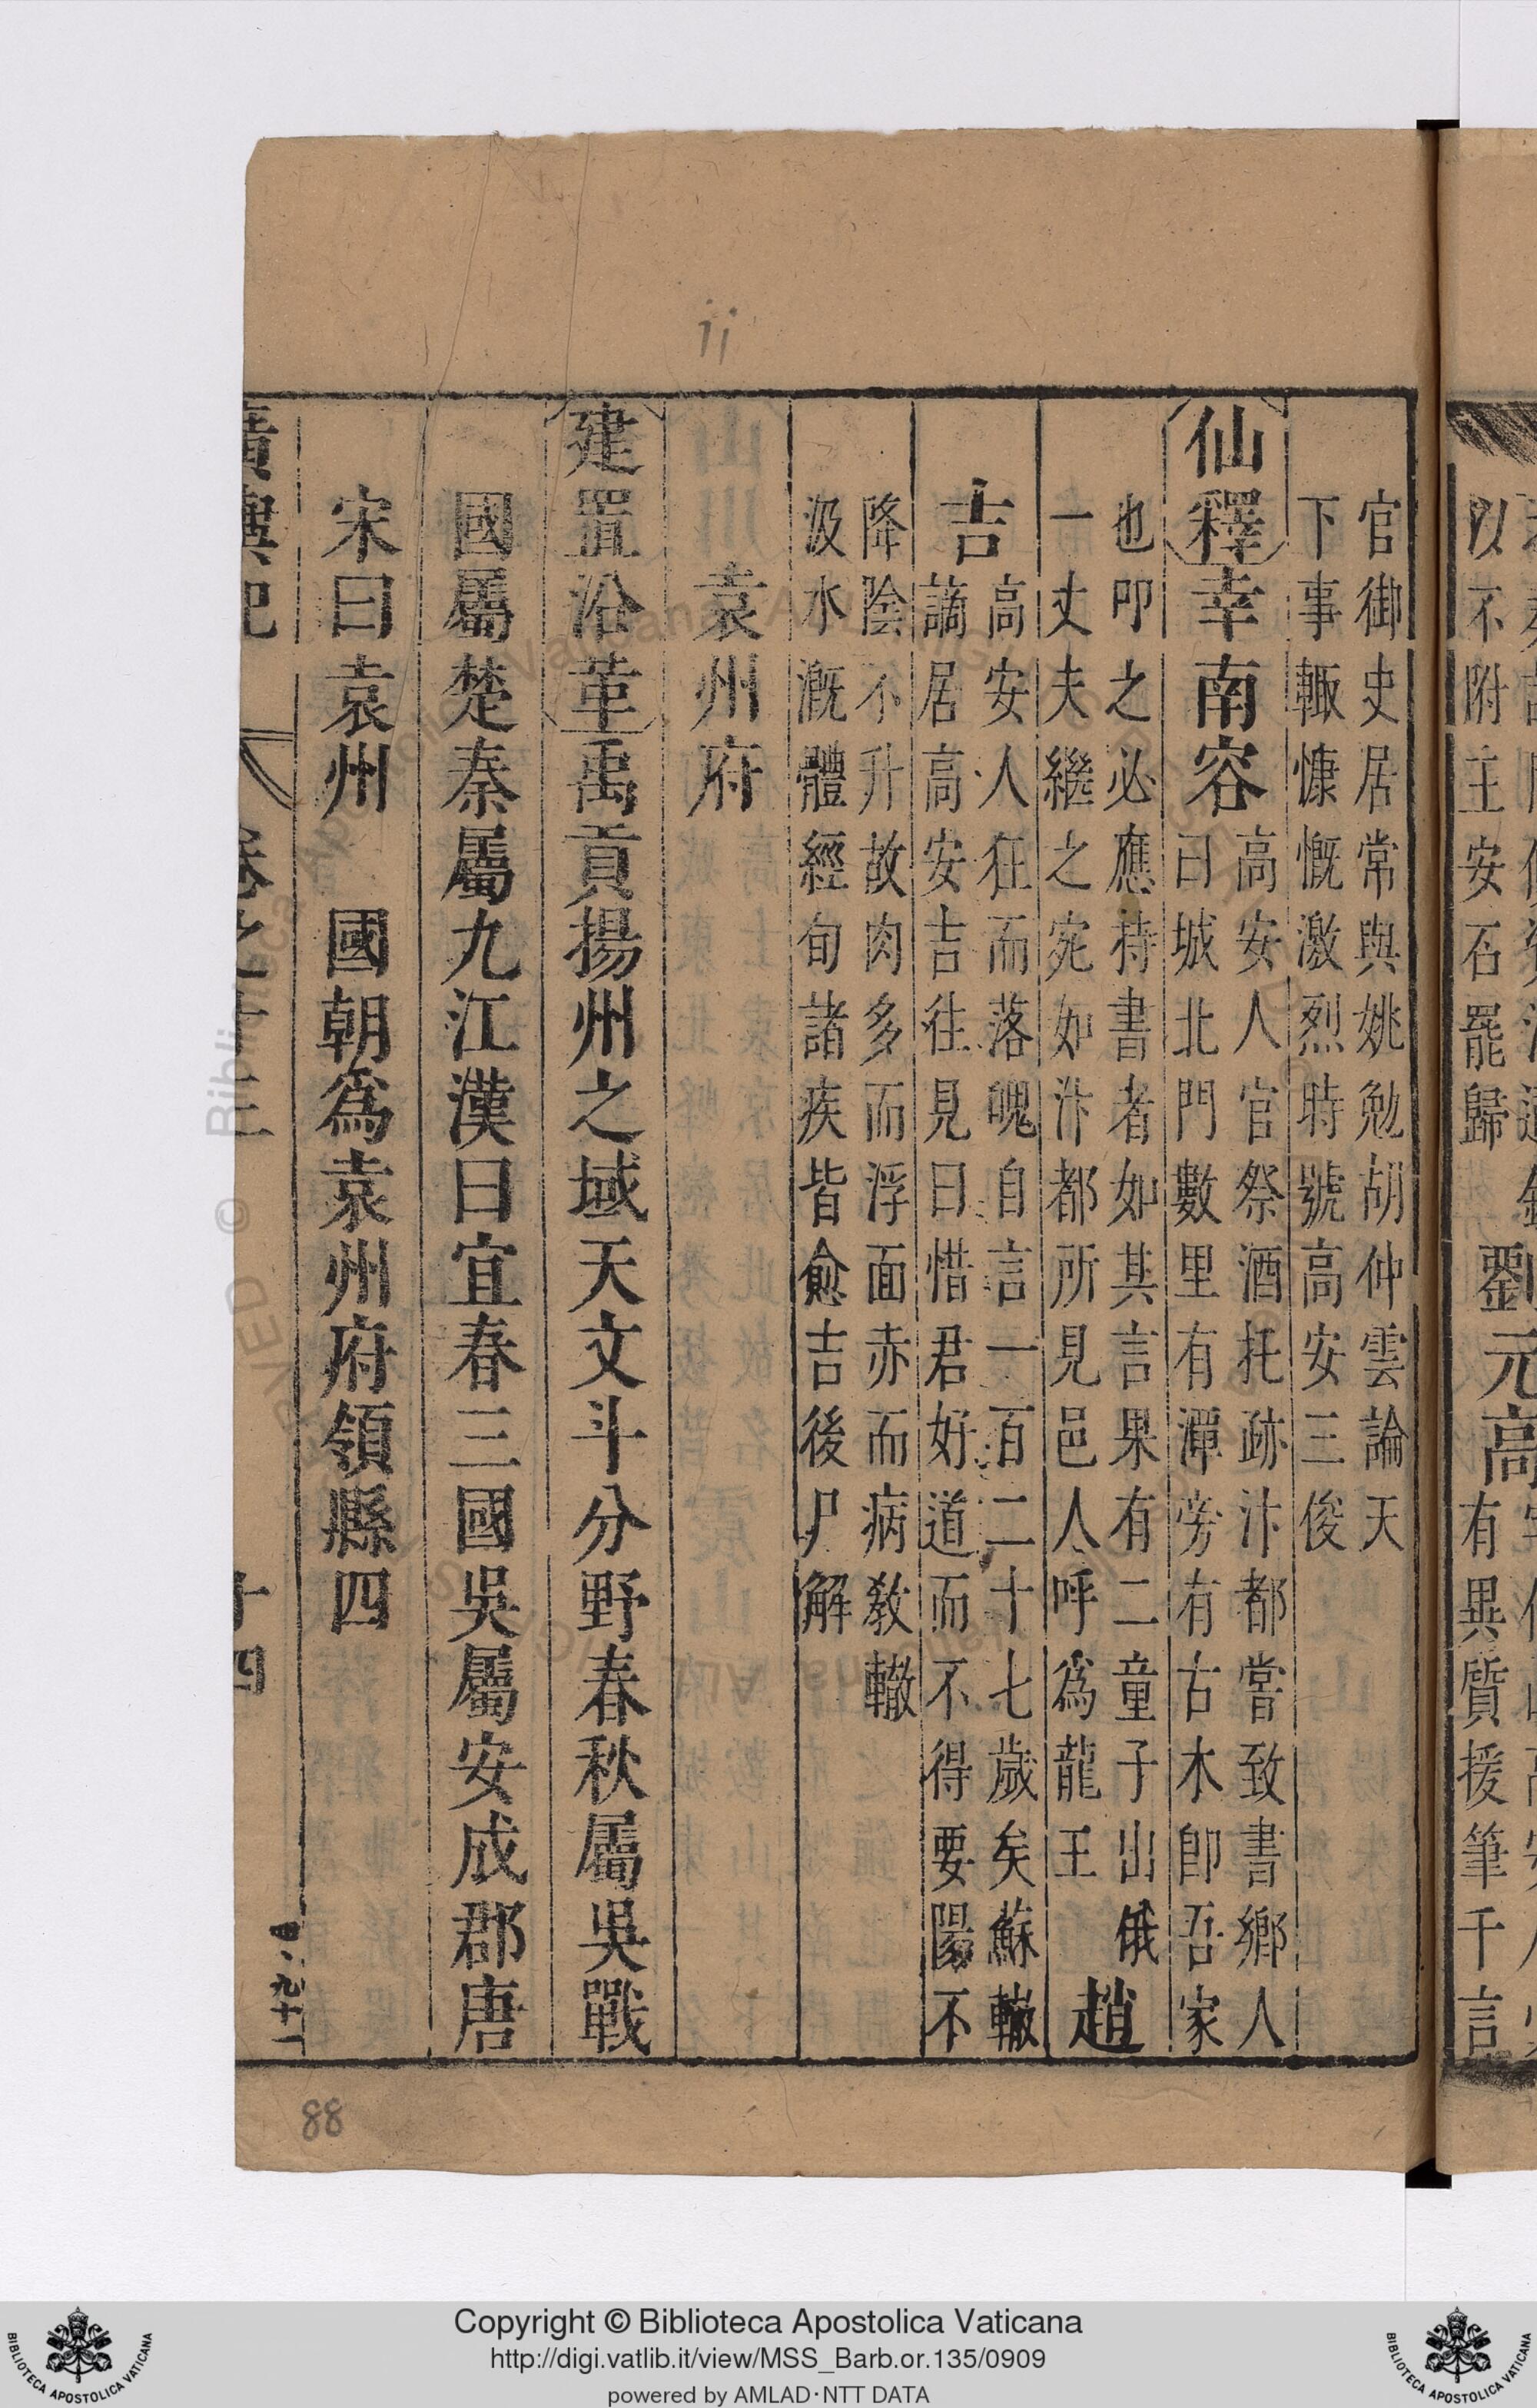 以不附主安石罷歸
劉元高
有異質援筆千言
官御史居常與姚勉胡仲雲論天
下事輒慷慨激烈時號高安三俊
仙釋幸南容
高安人官祭酒托跡汴都嘗致書鄉人
曰城北門數里有潭旁有古木卽吾家
也叩之必應持書者如其言果有二童子出俄
一丈夫繼之宛如汴都所見邑人呼爲龍王
趙
吉
高安人狂而落魄自言一百二十七歲矣蘇轍
謫居高安吉往見曰惜君好道而不得要陽不
降陰不升故肉多而浮面赤而病教轍
汲水漑體經旬諸疾皆愈吉後尸解
袁州府
建置沿革禹貢揚州之域天文斗分野春秋屬吳戰
國屬楚秦屬九江漢曰宜春三國吳屬安成郡唐
宋曰袁州 國朝爲袁州府領縣四
廣輿記
十四
ii
88
Copyright © Biblioteca Apostolica Vaticana
http://digi.vatlib.it/view/MSS_Barb.or.135/0909
powered by AMLAD·NTT DATA
BIBLIOTECA APOSTOLICA VATICANA
BIBLIOTECA APOSTOLICA VATICANA